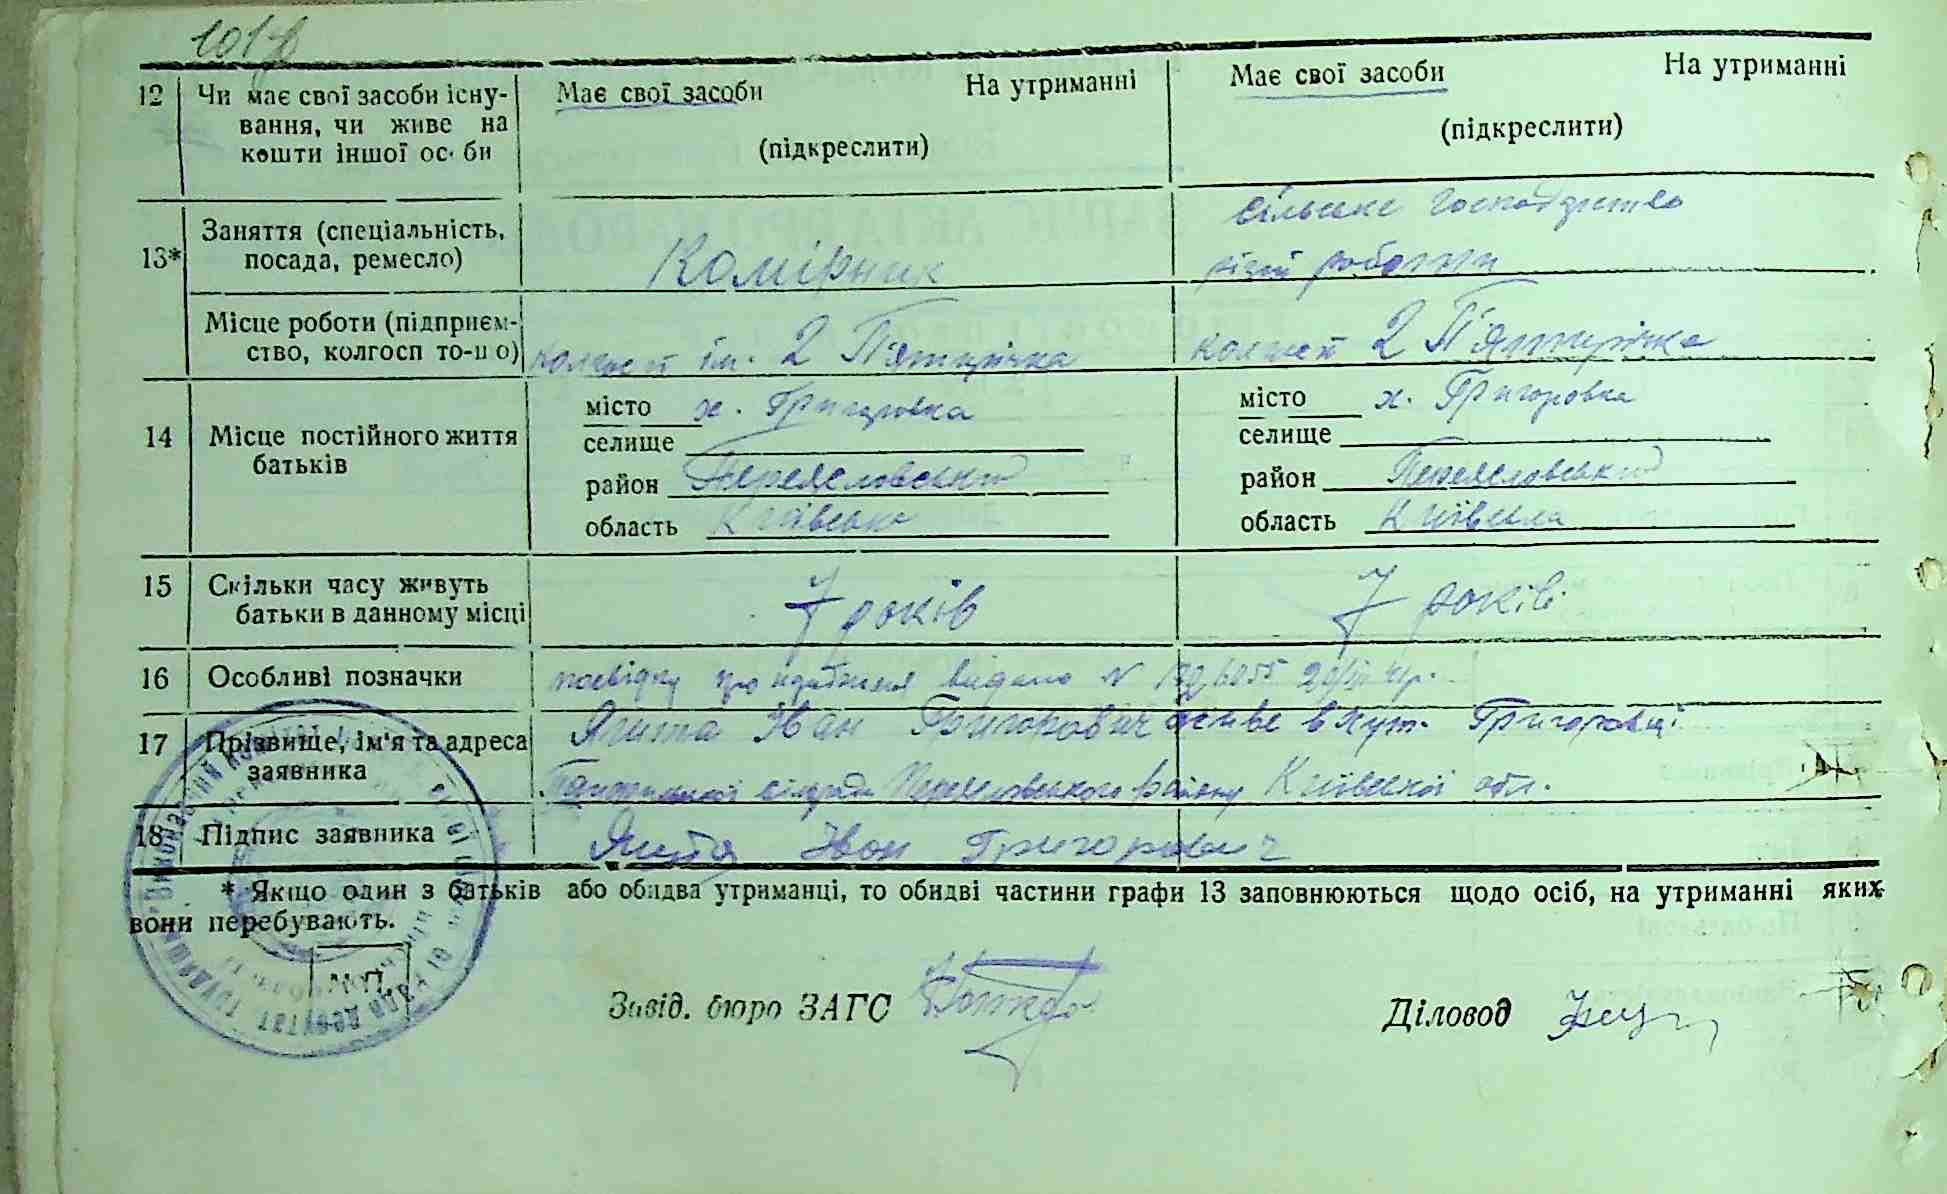 12 Чи має свої засоби існу-
вання, чи живе на
кошти іншої особи
Має свої засоби На утриманні
(підкреслити)
Має свої засоби На утриманні
(підкреслити)
13* Заняття (спеціальність,
посада, ремесло)
Комірник
сільське господарство
різні роботи
Місце роботи (підприєм-
ство, колгосп то-що)
колгосп ім. 2 П'ятирічка
колгосп 2 П'ятирічка
14 Місце постійного життя
батьків
місто х. Григоровка
селище
район Переясловський
область Київська
місто х. Григоровка
селище
район Переясловський
область Київська
15 Скільки часу живуть
батьки в данному місці
7 років
7 років
16 Особливі позначки
посвідку про видано N
17 Прізвище, ім'я та адреса
заявника
Ягита Іван Григорович живе в хут. Григоровці
сільради Переясловського району Київської обл.
18 Підпис заявника
Іван Григорович
* Якщо один з батьків або обидва утриманці, то обидві частини графи 13 заповнюються щодо осіб, на утриманні яких
вони перебувають.
М. П.
Завід. бюро ЗАГС
Діловод